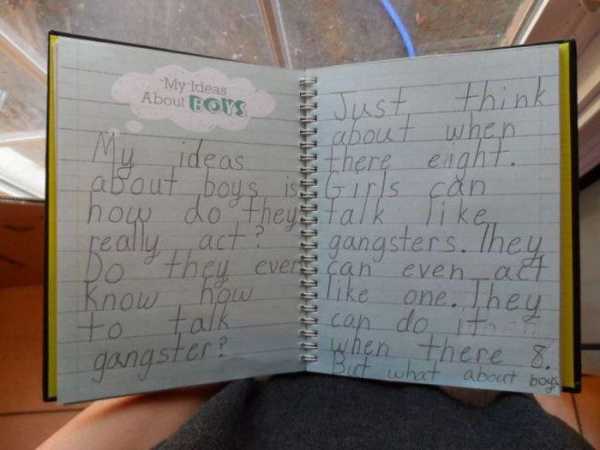 My Ideas
About BOYS
My ideas
about boys is
how do they
really act?
Do they even
know how
to talk
gangster?
Just think
about when
there eight.
Girls can
talk like
gangsters. They
can even act
like one. They
can do it
when there 8.
But what about boys